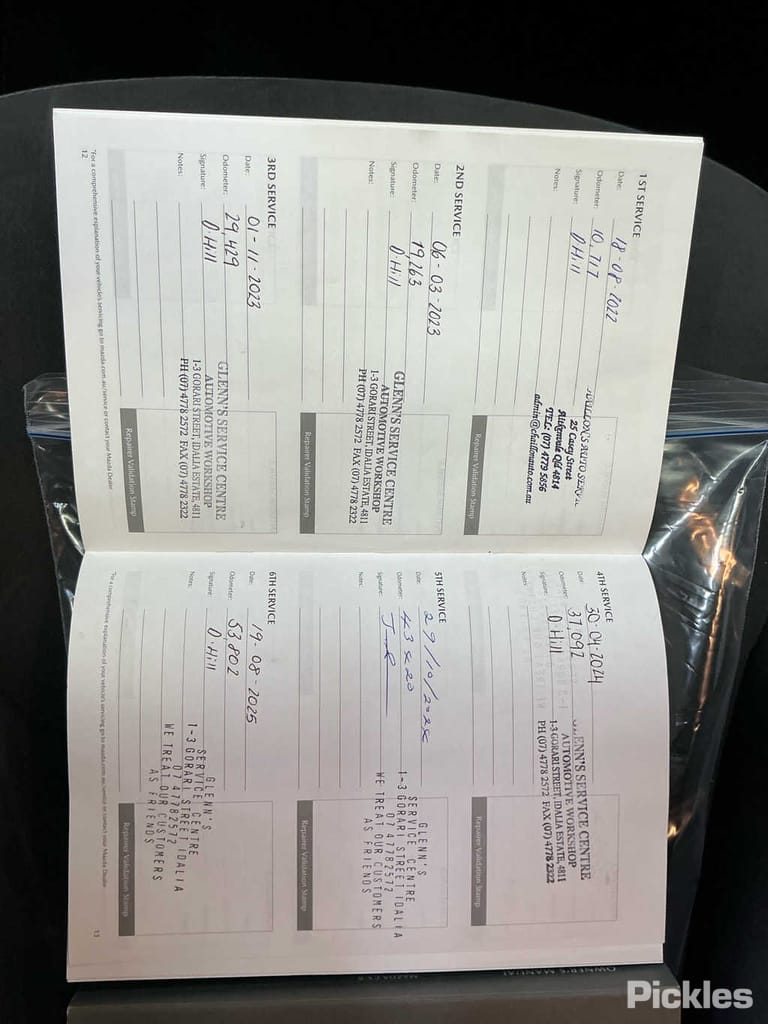 1ST SERVICE
Date: 18-08-2022
Odometer: 10,717
Signature: D Hill
Notes:
AUTO SERVICE
25 Casey Street
Aitkenvale Qld 4814
TEL: (07) 4779 5856
admin@chaillonauto.com.au
Repairer Validation Stamp
2ND SERVICE
Date: 06-03-2023
Odometer: 19,263
Signature: D.Hill
Notes:
GLENN'S SERVICE CENTRE
AUTOMOTIVE WORKSHOP
1-3 GORARI STREET, IDALIA ESTATE, 4811
PH (07) 4778 2572 FAX (07) 4778 2322
Repairer Validation Stamp
3RD SERVICE
Date: 01-11-2023
Odometer: 29,429
Signature: D.Hill
Notes:
GLENN'S SERVICE CENTRE
AUTOMOTIVE WORKSHOP
1-3 GORARI STREET, IDALIA ESTATE, 4811
PH (07) 4778 2572 FAX (07) 4778 2322
Repairer Validation Stamp
*For a comprehensive explanation of your vehicle's servicing go to mazda.com.au/service or contact your Mazda Dealer
12
4TH SERVICE
Date: 30-04-2024
Odometer: 37,092
Signature: D Hill
Notes:
GLENN'S SERVICE CENTRE
AUTOMOTIVE WORKSHOP
1-3 GORARI STREET, IDALIA ESTATE, 4811
PH (07) 4778 2572 FAX (07) 4778 2322
Repairer Validation Stamp
5TH SERVICE
Date: 29/10/2024
Odometer:
Signature:
Notes:
GLENN'S
SERVICE CENTRE
1-3 GORARI STREET IDALIA
07 47782572
WE TREAT OUR CUSTOMERS
AS FRIENDS
Repairer Validation Stamp
6TH SERVICE
Date: 19-08-2025
Odometer: 53,802
Signature: D.Hill
Notes:
GLENN'S
SERVICE CENTRE
1-3 GORARI STREET IDALIA
07 47782572
WE TREAT OUR CUSTOMERS
AS FRIENDS
Repairer Validation Stamp
*For a comprehensive explanation of your vehicle's servicing go to mazda.com.au/service or contact your Mazda Dealer
13
OWNER'S MANUAL
Pickles